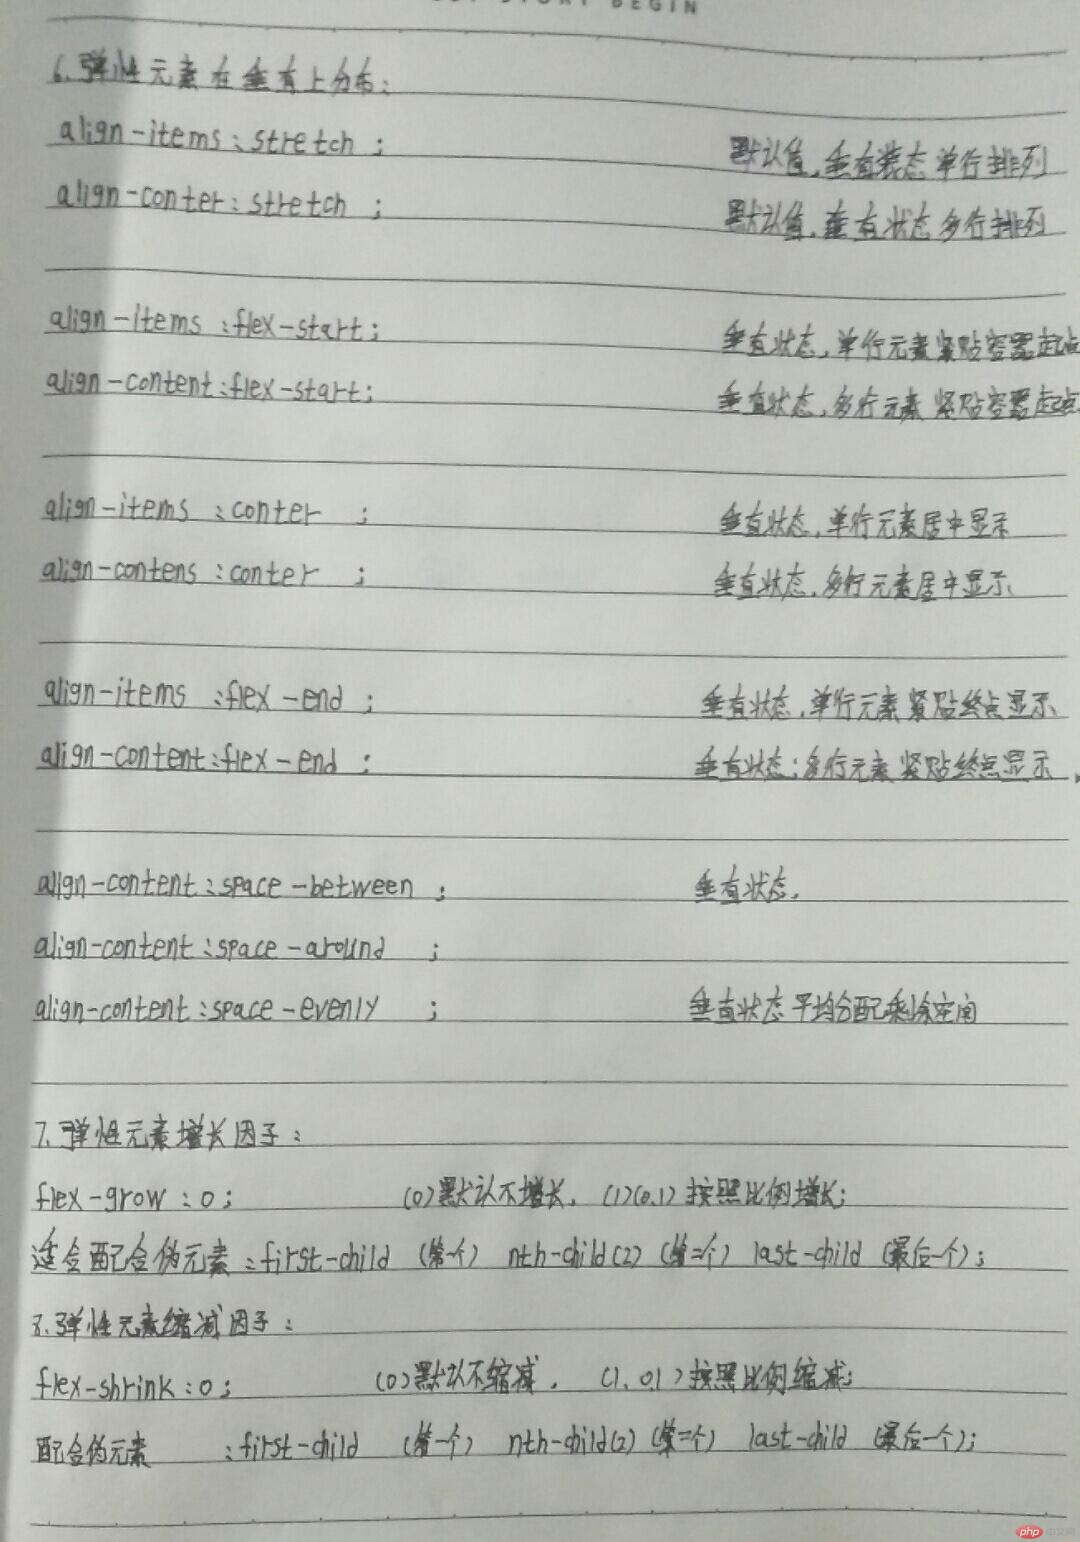 STORY BEGIN
6.弹性元素在垂直上分布:
align-items:stretch; 默认值,垂直状态单行排列
align-conter:stretch; 默认值,垂直状态多行排列
align-items:flex-start; 垂直状态,单行元素紧贴容器起点
align-content:flex-start; 垂直状态,多行元素紧贴容器起点
align-items:conter; 垂直状态,单行元素居中显示
align-contens:conter; 垂直状态,多行元素居中显示
align-items:flex-end; 垂直状态,单行元素紧贴终点显示
align-content:flex-end; 垂直状态;多行元素紧贴终点显示
align-content:space-between; 垂直状态,
align-content:space-around;
align-content:space-evenly; 垂直状态平均分配剩余空间
7.弹性元素增长因子:
flex-grow:0; (0)默认不增长, (1)(0.1)按照比例增长;
适合配合伪元素:first-child (第一个) nth-child(2) (第二个) last-child (最后一个);
8.弹性元素缩减因子:
flex-shrink:0; (0)默认不缩减, (1、0.1)按照比例缩减;
配合伪元素 :first-child (第一个) nth-child(2) (第二个) last-child (最后一个);
php 中文网